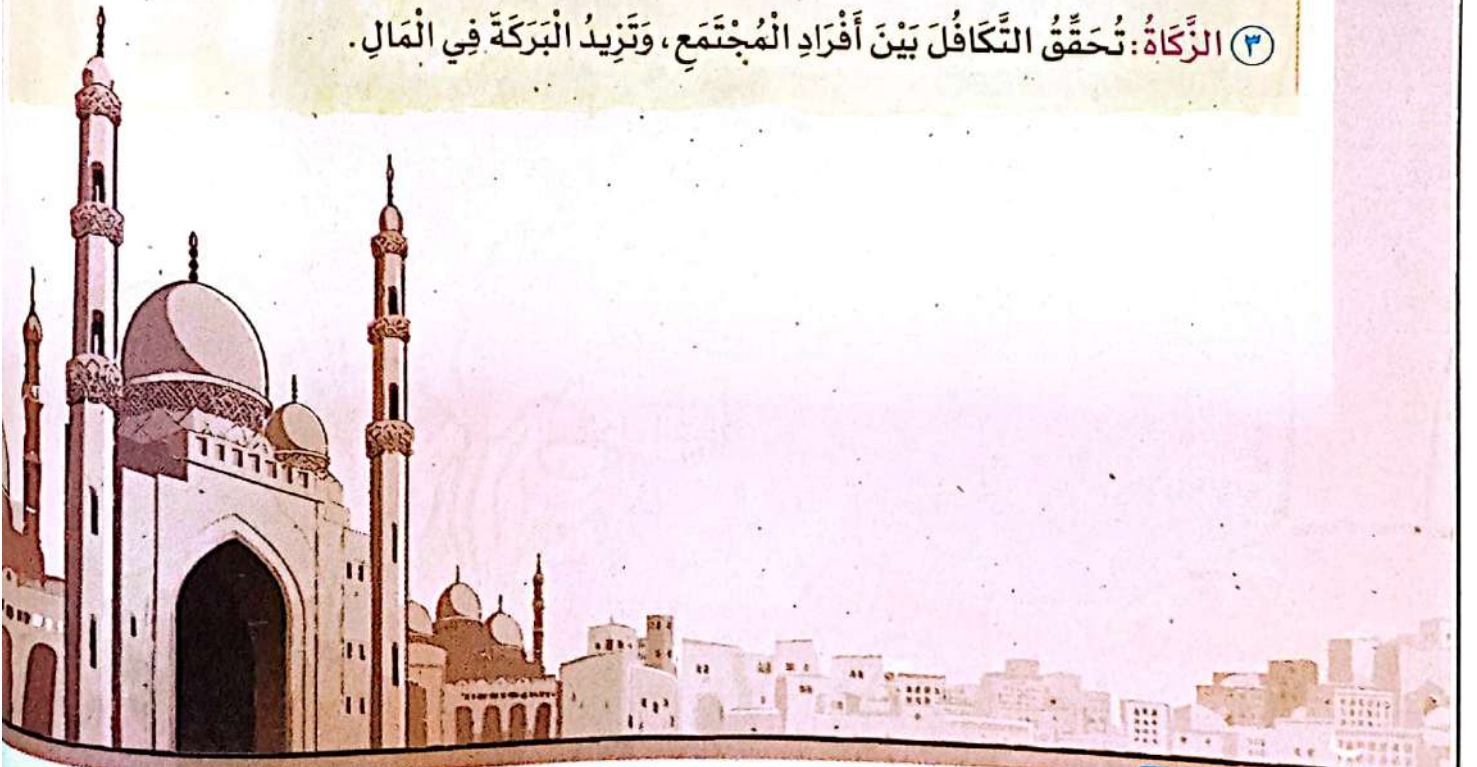 ٣ الزَّكَاةُ: تُحَقِّقُ التَّكَافُلَ بَيْنَ أَفْرَادِ الْمُجْتَمَعِ، وَتَزِيدُ الْبَرَكَةَ فِي الْمَالِ.